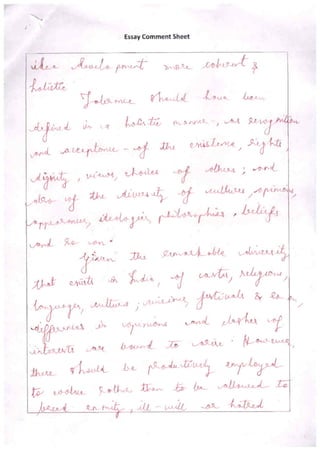 Essay Comment Sheet
idea development more coherent &
holistic
Tolerance should have been
defined in a holistic manner -, as recognition
and acceptance - of the existence, rights,
dignity, views, choices of others ; and
also of the diversity of cultures, opinions,
appearances, ideologies, philosophies, beliefs
and so on.
Given the remarkable diversity
that exists in India, of castes, religions,
languages, cultures, cuisines, festivals & so on,
differences in opinions and clashes of
interests are bound to arise. However,
these should be productively employed
to evolve rather than to be allowed to
breed enmity, ill-will or hatred